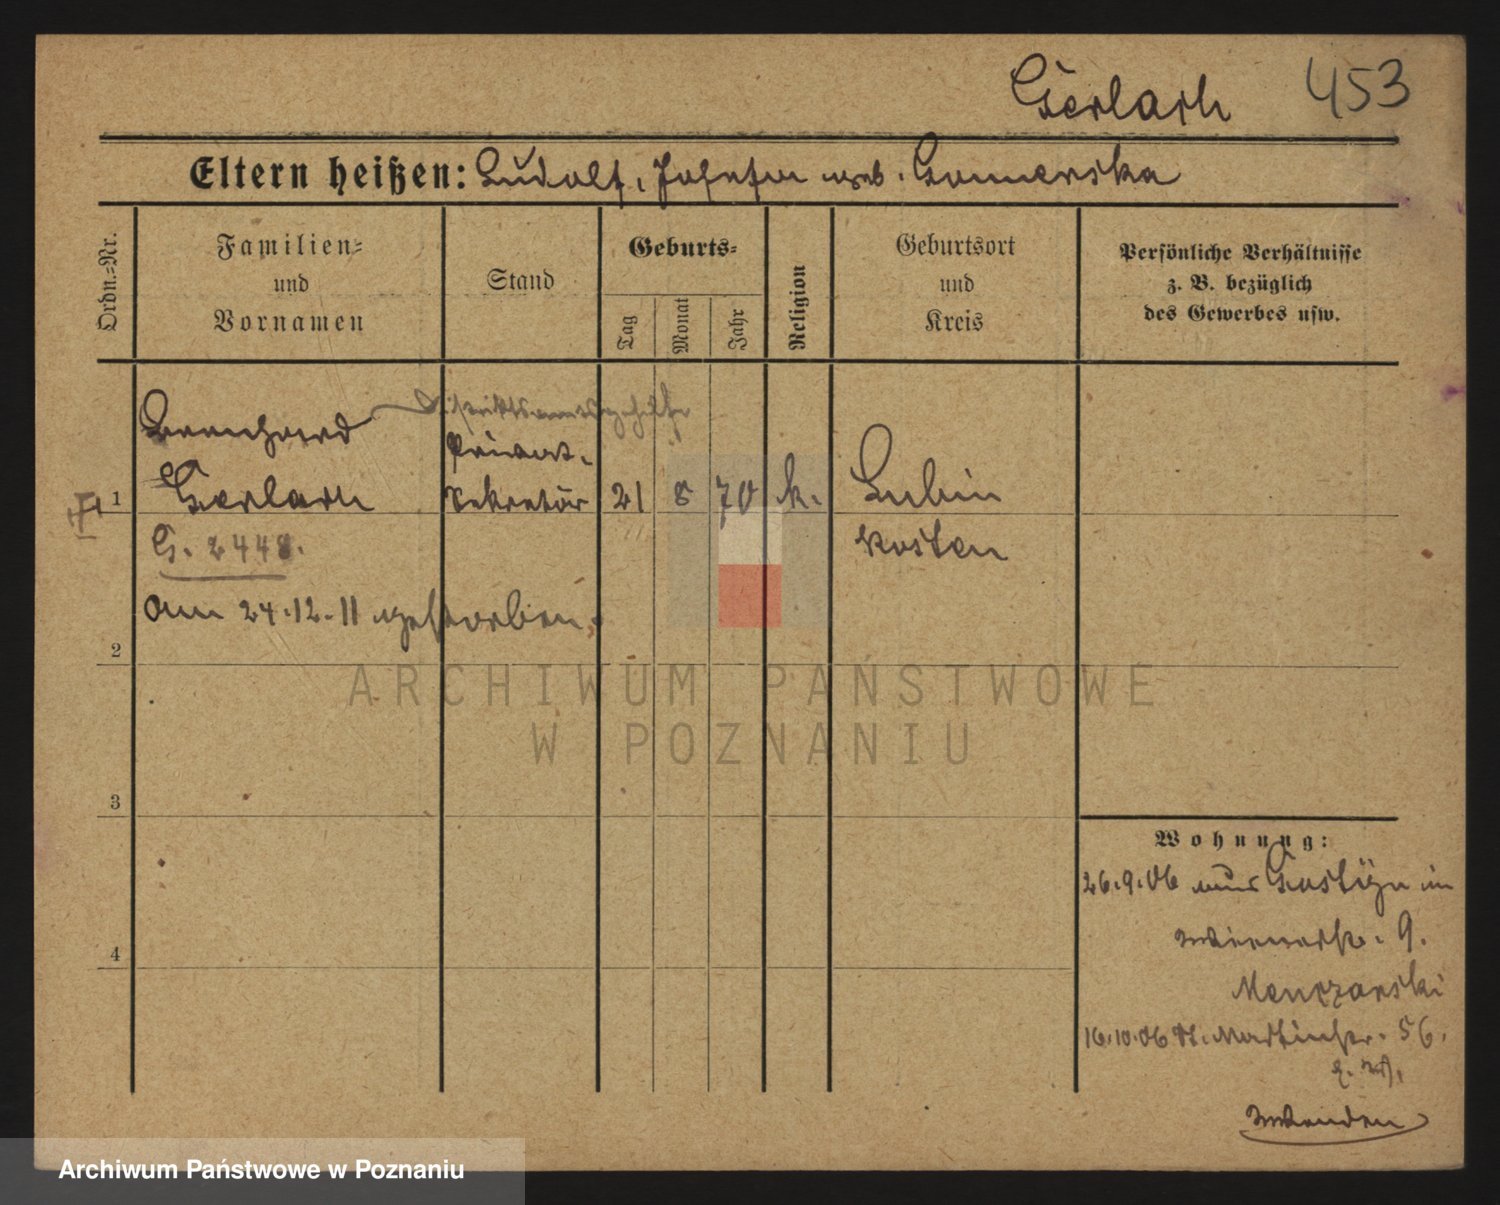 Gerlach 453
Eltern heißen: Rudolf, Josefin geb. Gomerska
Ordn.=Nr.
Familien=
und
Vornamen
Stand
Geburts=
Tag
Monat
Jahr
Religion
Geburtsort
und
Kreis
Persönliche Verhältnisse
z. B. bezüglich
des Gewerbes usw.
Distriktsamtsgehilfe
Bernhard Privat-
1 Gerlach Sekretär 21 8 70 k. Lubin
G. 2448. Kosten
am 24.12.11 gestorben.
2
ARCHIWUM PAŃSTWOWE
W POZNANIU
3
Wohnung:
26.9.06 aus Gostÿn in
9.
4
Menczarski
16.10.06 St. Martinstr. 56.
Wenden
Archiwum Państwowe w Poznaniu